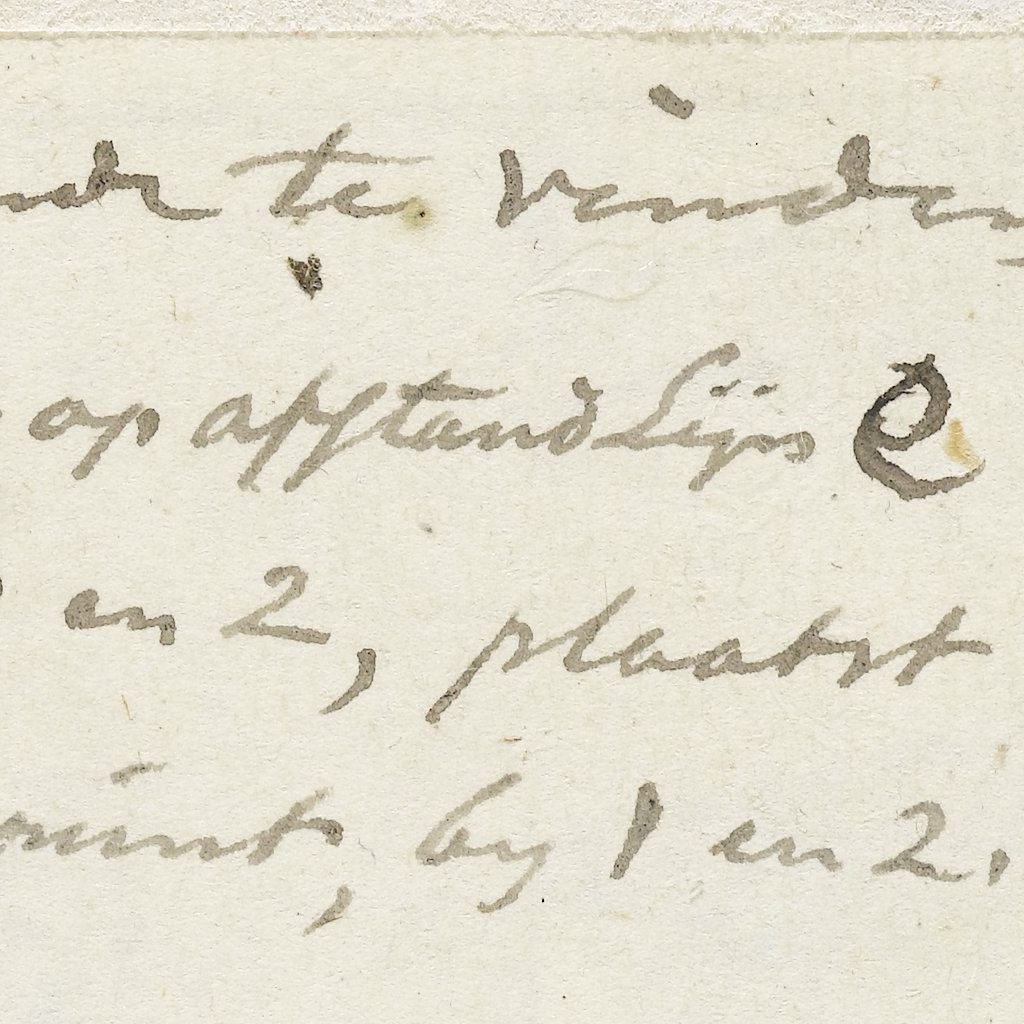 te vinden
op afstandslijn C
en 2, plaatst
punt, by 1 en 2.